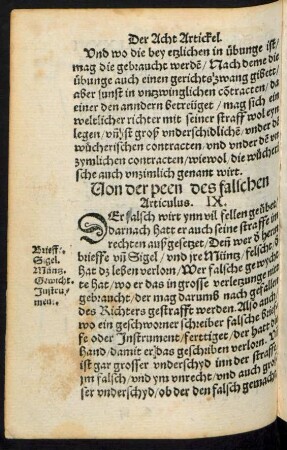 Der Acht Artickel.
Vnd wo die bey etzlichen in übunge ist/
mag die gebraucht werdẽ/ Nach deme die
übunge auch einen gerichtszwang gibett/
aber sunst in vnzwinglichen cõtracten/ da
einer den anndern Betreüget/ mag sich ein
weltlicher richter mit seiner straff wol eyn
legen/ vñ ist groß vnderschidlichē/ vnder dē
wücherischen contracten/ vnd vnder dē vn
zymlichen contracten/ wiewol/ die wücheri
sche auch vnzimlich genant wirt.
Von der peen des falschen
Articulus. IX.
DEr falsch wirt ynn vil fellen geübet/
Darnach hatt er auch seine straffe im
rechten außgesetzet/ Deñ wer d̄ herrn
brieffe vñ Sigel/ vnd jre Müntz/ felsche/ d̄
hat dz leben verlorn/ Wer falsche gewychte
hat/ wo er das in grosse verletzunge mit
gebraucht/ der mag darumb nach gefallen
des Richters gestrafft werden. Also auch/
wo ein geschworner schreiber falsche brief
fe oder Instrument/ ferttiget/ der hatt die
Hand/ damit er das geschriben verlorn. Vñ
ist gar grosser vnderschyd inn der straffe
ym falsch/ vnd ym vnrecht/ vnd auch gros
ser vnderschyd/ ob der den falsch gemacht
Brieffe.
Sigel.
Müntz.
Gewicht.
Instru/
ment.